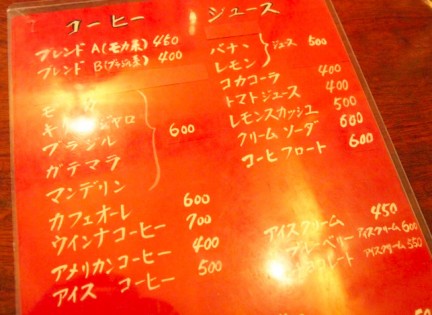 コーヒー
ブレンド A(モカ系) 450
ブレンド B(ブラジル系) 400
モカ
キリマンジャロ
ブラジル
ガテマラ
マンデリン
600
カフェオーレ 600
ウインナコーヒー 700
アメリカンコーヒー 400
アイス コーヒー 500
ジュース
バナナ
レモン
ジュース 500
コカコーラ 400
トマトジュース 400
レモンスカッシュ 500
クリーム ソーダ 600
コーヒーフロート 600
アイスクリーム 450
ブルーベリーアイスクリーム 600
アイスクリーム 550